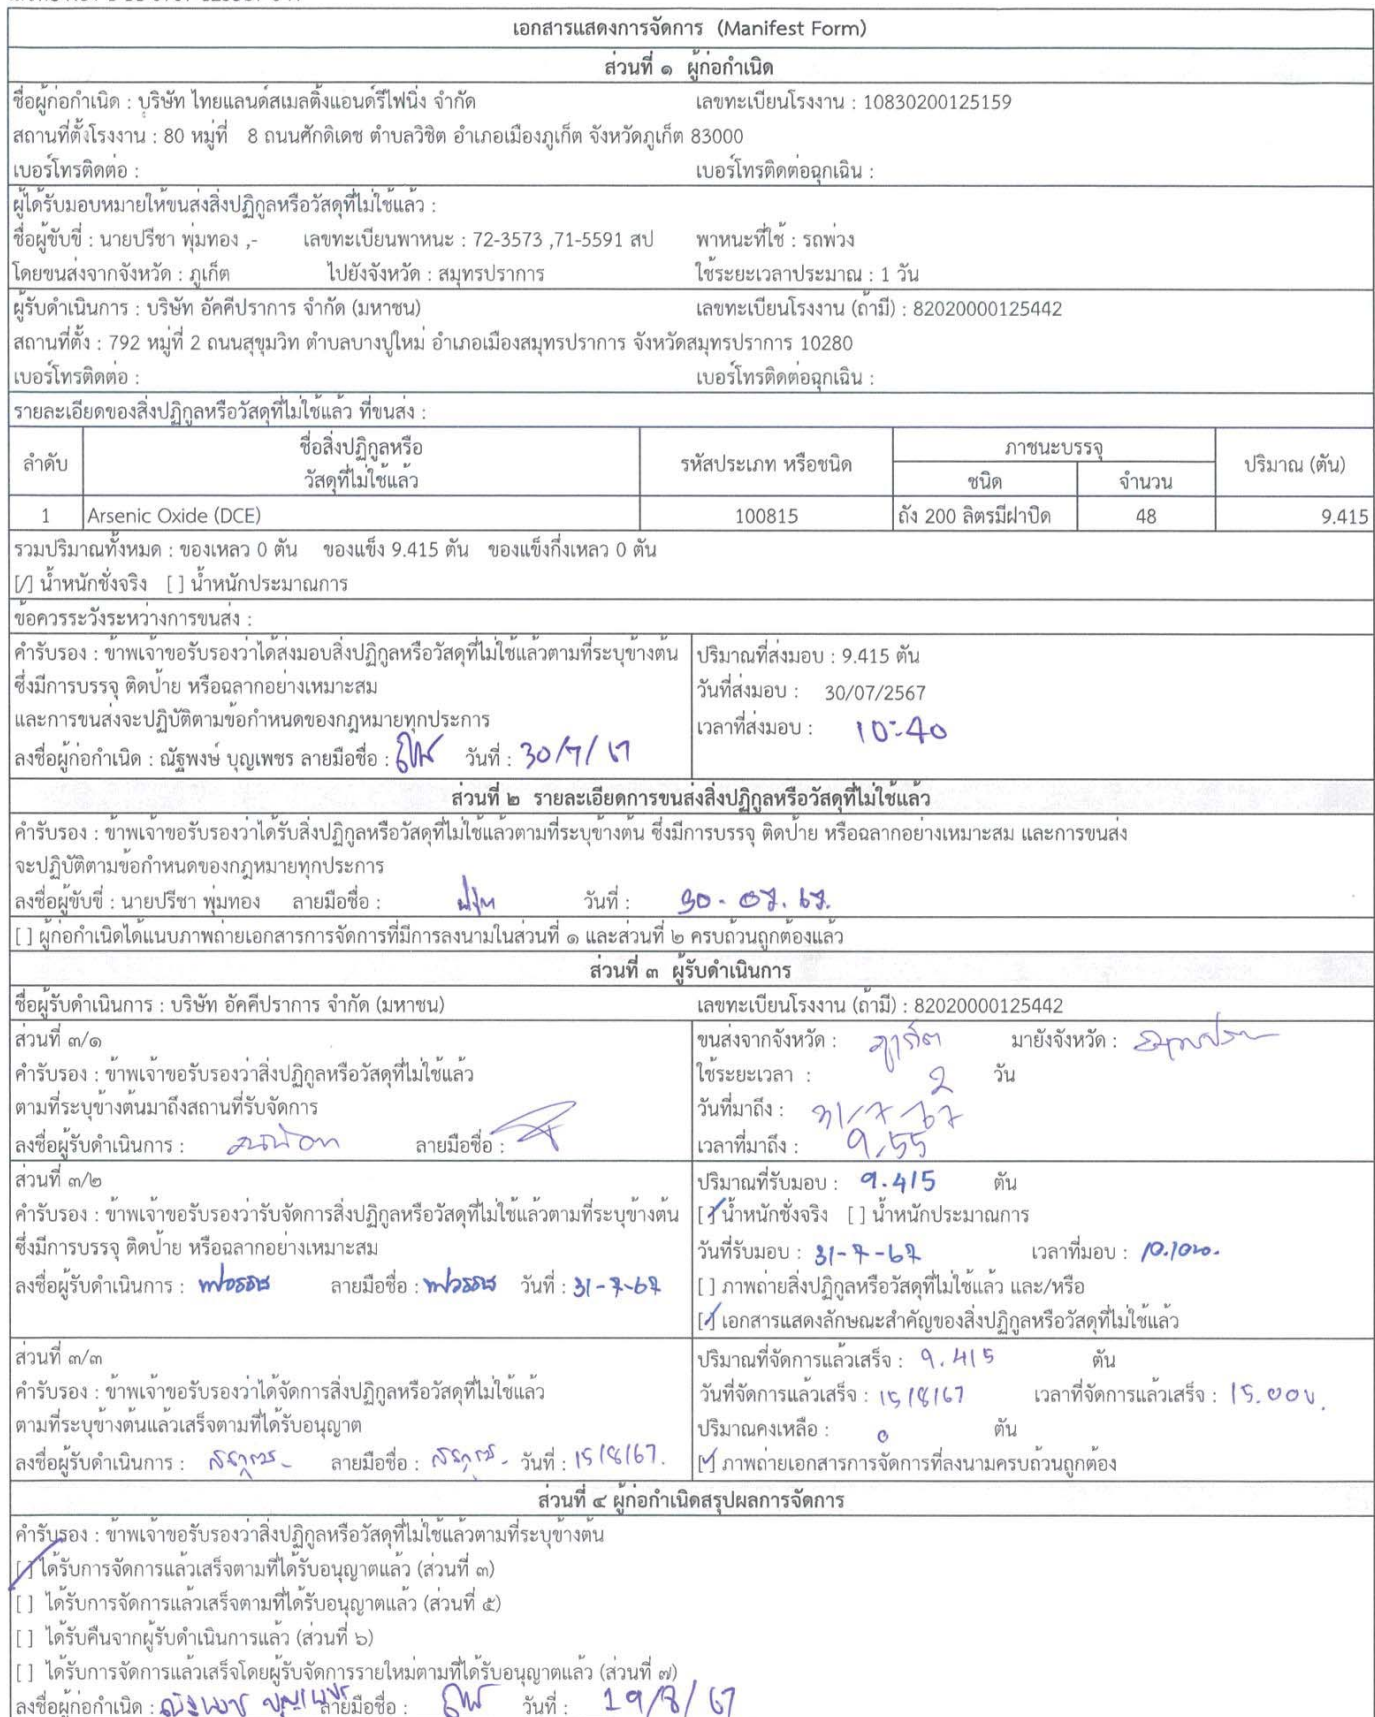 เอกสารแสดงการจัดการ (Manifest Form)
ส่วนที่ ๑ ผู้ก่อกำเนิด
ชื่อผู้ก่อกำเนิด : บริษัท ไทยแลนด์สเมลติ้งแอนด์รีไฟนิ่ง จำกัด เลขทะเบียนโรงงาน : 10830200125159
สถานที่ตั้งโรงงาน : 80 หมู่ที่ 8 ถนนศักดิเดช ตำบลวิชิต อำเภอเมืองภูเก็ต จังหวัดภูเก็ต 83000
เบอร์โทรติดต่อ : เบอร์โทรติดต่อฉุกเฉิน :
ผู้ได้รับมอบหมายให้ขนส่งสิ่งปฏิกูลหรือวัสดุที่ไม่ใช้แล้ว :
ชื่อผู้ขับขี่ : นายปรีชา พุ่มทอง ,- เลขทะเบียนพาหนะ : 72-3573 ,71-5591 สป พาหนะที่ใช้ : รถพ่วง
โดยขนส่งจากจังหวัด : ภูเก็ต ไปยังจังหวัด : สมุทรปราการ ใช้ระยะเวลาประมาณ : 1 วัน
ผู้รับดำเนินการ : บริษัท อัคคีปราการ จำกัด (มหาชน) เลขทะเบียนโรงงาน (ถ้ามี) : 82020000125442
สถานที่ตั้ง : 792 หมู่ที่ 2 ถนนสุขุมวิท ตำบลบางปูใหม่ อำเภอเมืองสมุทรปราการ จังหวัดสมุทรปราการ 10280
เบอร์โทรติดต่อ : เบอร์โทรติดต่อฉุกเฉิน :
รายละเอียดของสิ่งปฏิกูลหรือวัสดุที่ไม่ใช้แล้ว ที่ขนส่ง :
ลำดับ ชื่อสิ่งปฏิกูลหรือ วัสดุที่ไม่ใช้แล้ว รหัสประเภท หรือชนิด ภาชนะบรรจุ ปริมาณ (ตัน)
ชนิด จำนวน
1 Arsenic Oxide (DCE) 100815 ถัง 200 ลิตรมีฝาปิด 48 9.415
รวมปริมาณทั้งหมด : ของเหลว 0 ตัน ของแข็ง 9.415 ตัน ของแข็งกึ่งเหลว 0 ตัน
[/] น้ำหนักชั่งจริง [ ] น้ำหนักประมาณการ
ข้อควรระวังระหว่างการขนส่ง :
คำรับรอง : ข้าพเจ้าขอรับรองว่าได้ส่งมอบสิ่งปฏิกูลหรือวัสดุที่ไม่ใช้แล้วตามที่ระบุข้างต้น ปริมาณที่ส่งมอบ : 9.415 ตัน
ซึ่งมีการบรรจุ ติดป้าย หรือฉลากอย่างเหมาะสม วันที่ส่งมอบ : 30/07/2567
และการขนส่งจะปฏิบัติตามข้อกำหนดของกฎหมายทุกประการ เวลาที่ส่งมอบ : 10:40
ลงชื่อผู้ก่อกำเนิด : ณัฐพงษ์ บุญเพชร ลายมือชื่อ : วันที่ : 30/7/67
ส่วนที่ ๒ รายละเอียดการขนส่งสิ่งปฏิกูลหรือวัสดุที่ไม่ใช้แล้ว
คำรับรอง : ข้าพเจ้าขอรับรองว่าได้รับสิ่งปฏิกูลหรือวัสดุที่ไม่ใช้แล้วตามที่ระบุข้างต้น ซึ่งมีการบรรจุ ติดป้าย หรือฉลากอย่างเหมาะสม และการขนส่ง
จะปฏิบัติตามข้อกำหนดของกฎหมายทุกประการ
ลงชื่อผู้ขับขี่ : นายปรีชา พุ่มทอง ลายมือชื่อ : วันที่ : 30-07.67.
[ ] ผู้ก่อกำเนิดได้แนบภาพถ่ายเอกสารการจัดการที่มีการลงนามในส่วนที่ ๑ และส่วนที่ ๒ ครบถ้วนถูกต้องแล้ว
ส่วนที่ ๓ ผู้รับดำเนินการ
ชื่อผู้รับดำเนินการ : บริษัท อัคคีปราการ จำกัด (มหาชน) เลขทะเบียนโรงงาน (ถ้ามี) : 82020000125442
ส่วนที่ ๓/๑ ขนส่งจากจังหวัด : ภูเก็ต มายังจังหวัด :
คำรับรอง : ข้าพเจ้าขอรับรองว่าสิ่งปฏิกูลหรือวัสดุที่ไม่ใช้แล้ว ใช้ระยะเวลา : 2 วัน
ตามที่ระบุข้างต้นมาถึงสถานที่รับจัดการ วันที่มาถึง : 31/7-67
ลงชื่อผู้รับดำเนินการ : ลายมือชื่อ : เวลาที่มาถึง : 9.55
ส่วนที่ ๓/๒ ปริมาณที่รับมอบ : 9.415 ตัน
คำรับรอง : ข้าพเจ้าขอรับรองว่ารับจัดการสิ่งปฏิกูลหรือวัสดุที่ไม่ใช้แล้วตามที่ระบุข้างต้น [/] น้ำหนักชั่งจริง [ ] น้ำหนักประมาณการ
ซึ่งมีการบรรจุ ติดป้าย หรือฉลากอย่างเหมาะสม วันที่รับมอบ : 31-7-67 เวลาที่มอบ : 10.10น.
ลงชื่อผู้รับดำเนินการ : ลายมือชื่อ : วันที่ : 31-7-67 [ ] ภาพถ่ายสิ่งปฏิกูลหรือวัสดุที่ไม่ใช้แล้ว และ/หรือ
[/] เอกสารแสดงลักษณะสำคัญของสิ่งปฏิกูลหรือวัสดุที่ไม่ใช้แล้ว
ส่วนที่ ๓/๓ ปริมาณที่จัดการแล้วเสร็จ : 9.415 ตัน
คำรับรอง : ข้าพเจ้าขอรับรองว่าได้จัดการสิ่งปฏิกูลหรือวัสดุที่ไม่ใช้แล้ว วันที่จัดการแล้วเสร็จ : 15/8/67 เวลาที่จัดการแล้วเสร็จ : 15.00น.
ตามที่ระบุข้างต้นแล้วเสร็จตามที่ได้รับอนุญาต ปริมาณคงเหลือ : 0 ตัน
ลงชื่อผู้รับดำเนินการ : ลายมือชื่อ : วันที่ : 15/8/67. [/] ภาพถ่ายเอกสารการจัดการที่ลงนามครบถ้วนถูกต้อง
ส่วนที่ ๔ ผู้ก่อกำเนิดสรุปผลการจัดการ
คำรับรอง : ข้าพเจ้าขอรับรองว่าสิ่งปฏิกูลหรือวัสดุที่ไม่ใช้แล้วตามที่ระบุข้างต้น
[/] ได้รับการจัดการแล้วเสร็จตามที่ได้รับอนุญาตแล้ว (ส่วนที่ ๓)
[ ] ได้รับการจัดการแล้วเสร็จตามที่ได้รับอนุญาตแล้ว (ส่วนที่ ๕)
[ ] ได้รับคืนจากผู้รับดำเนินการแล้ว (ส่วนที่ ๖)
[ ] ได้รับการจัดการแล้วเสร็จโดยผู้รับจัดการรายใหม่ตามที่ได้รับอนุญาตแล้ว (ส่วนที่ ๗)
ลงชื่อผู้ก่อกำเนิด : ณัฐพงษ์ บุญเพชร ลายมือชื่อ : วันที่ : 19/8/67